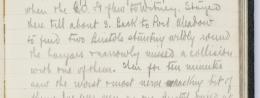 when the C.O. & I flew to Witney. Stayed
there till about 3. Back to Port Meadow
to find two Bristols stunting wildly round
the hangars & narrowly missed a collision
with one of them. Then for ten minutes
saw the worst & most nerve racking bit of